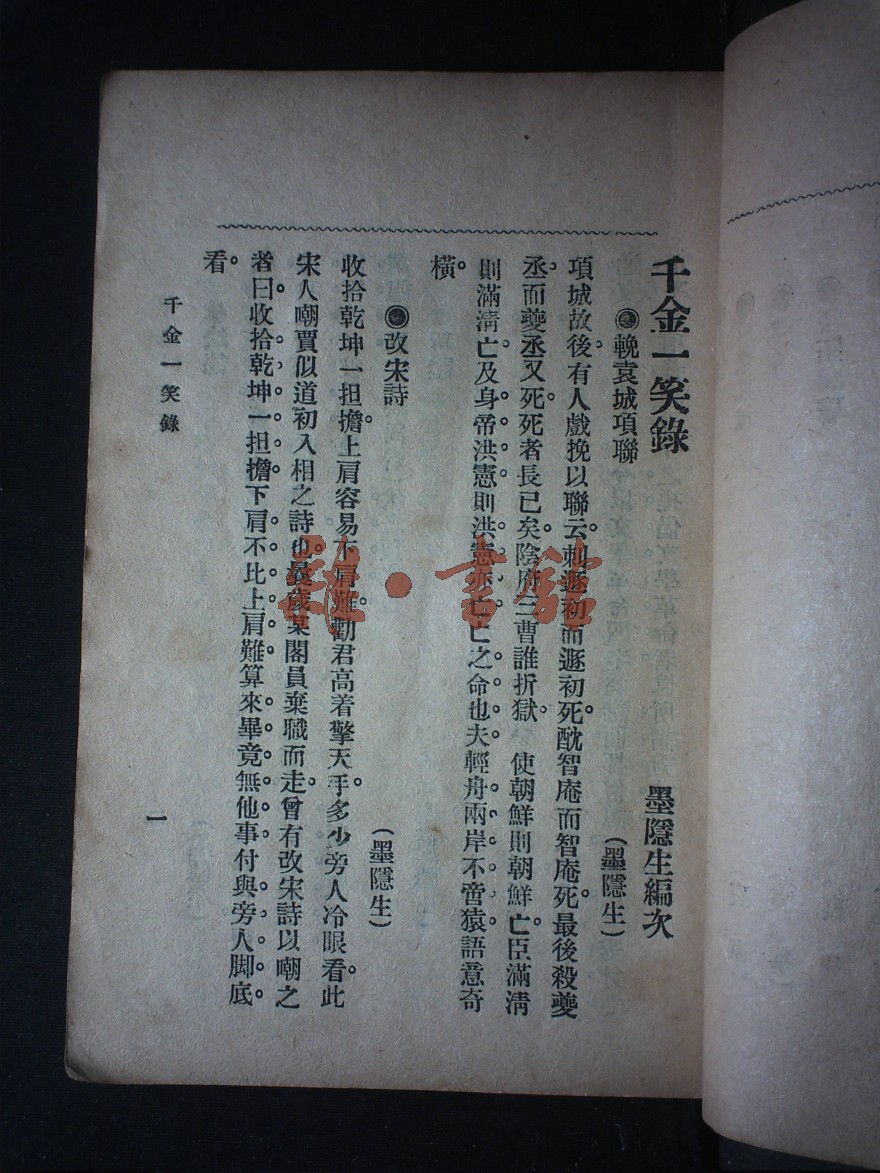 千金一笑錄
墨隱生編次
◉輓袁城項聯
(墨隱生)
項城故後有人戲挽以聯云。刺遯初而遯初死。酖智庵而智庵死。最後殺夔
丞而夔丞又死。死者長已矣。陰府三曹誰折獄。 使朝鮮則朝鮮亡。臣滿淸
則滿淸亡。及身帝洪憲則洪憲亦亡。亡之命也夫。輕舟兩岸不啻猿。語意奇
橫。
◉改宋詩
(墨隱生)
收拾乾坤一担擔。上肩容易下肩難。勸君高着擎天手。多少旁人冷眼看。此
宋人嘲賈似道初入相之詩也。曩歲某閣員棄職而走。曾有改宋詩以嘲之
者。曰。收拾乾坤一担擔。下肩不比上肩難。算來畢竟無他事。付與旁人脚底
看。
千金一笑錄
一
雜·書館